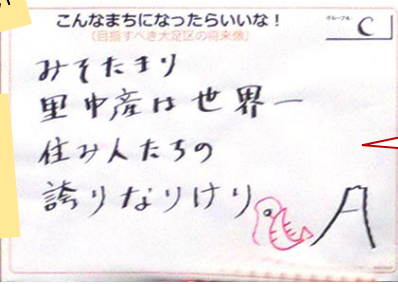 こんなまちになったらいいな!
(目指すべき大足区の将来像)
グループ名
C
みそたまり
里中産は世界一
住み人たちの
誇りなりけり